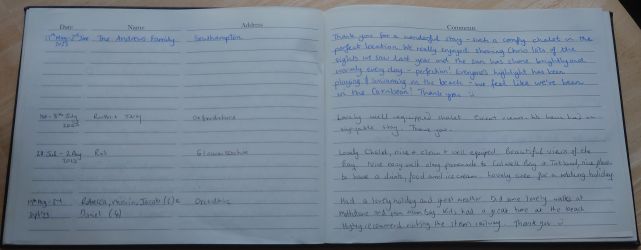 Date Name Address Comments
The Andrews Family Southampton
Thank you for a wonderful stay - such a comfy chalet in the
perfect location. We really enjoyed showing Chris lots of the
sights we saw last year and the sun has shone brightly and
warmly every day - perfection! Everyone's highlight has been
playing & swimming on the beach - we feel like we've been
in the Caribbean! Thank you
Oxfordshire
Lovely well equipped chalet. Great views. We have had an
enjoyable stay. Thank you.
Rob Gloucestershire
Lovely Chalet, nice & clean & well equipped. Beautiful views of the
Bay. Nice easy walk along promenade to Colwell Bay & Totland, nice places
to have a drink, food and ice cream. Lovely area for a relaxing holiday
Rebecca, Jacob
Daniel
Had a lovely holiday and great weather. Did some lovely walks at
and from Kids had a great time at the beach
Highly recommend visiting the steam railway. Thank you